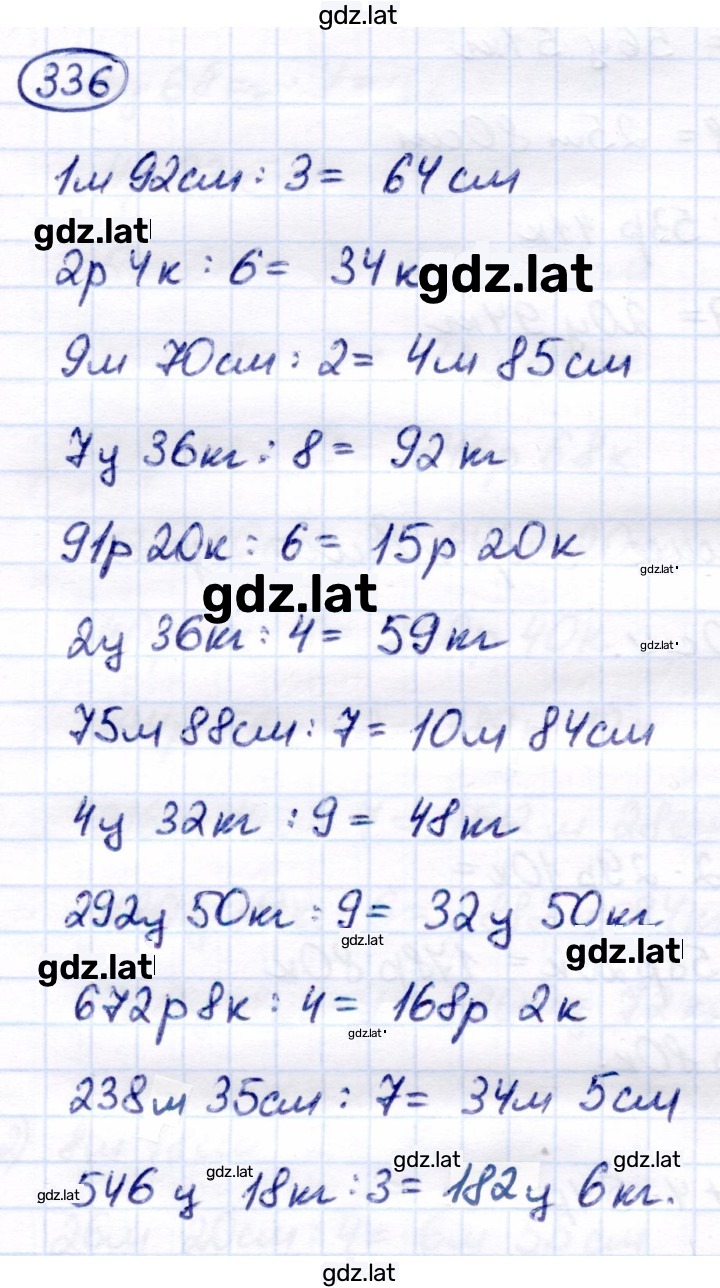 gdz.lat
336
1м 92см : 3 = 64см
gdz.lat
2р 4к : 6 = 34к
gdz.lat
9м 70см : 2 = 4м 85см
7ц 36кг : 8 = 92кг
91р 20к : 6 = 15р 20к
gdz.lat
gdz.lat
2ц 36кг : 4 = 59кг
gdz.lat
75м 88см : 7 = 10м 84см
4ц 32кг : 9 = 48кг
292ц 50кг : 9 = 32ц 50кг
gdz.lat
gdz.lat
gdz.lat
672р 8к : 4 = 168р 2к
gdz.lat
238м 35см : 7 = 34м 5см
gdz.lat
gdz.lat
gdz.lat
gdz.lat
546ц 18кг : 3 = 182ц 6кг.
gdz.lat